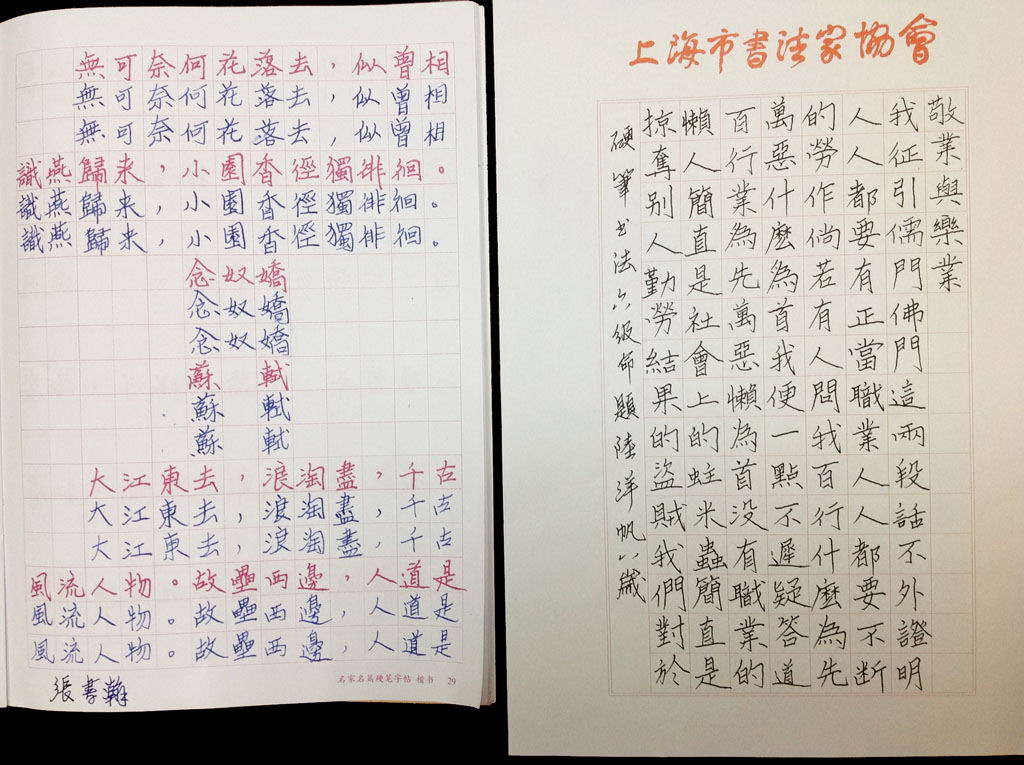 無可奈何花落去，似曾相
無可奈何花落去，似曾相
無可奈何花落去，似曾相
識燕歸来，小園香徑獨徘徊。
識燕歸来，小園香徑獨徘徊。
識燕歸来，小園香徑獨徘徊。
念奴嬌
念奴嬌
念奴嬌
蘇 軾
蘇 軾
蘇 軾
大江東去，浪淘盡，千古
大江東去，浪淘盡，千古
大江東去，浪淘盡，千古
風流人物。故壘西邊，人道是
風流人物。故壘西邊，人道是
風流人物。故壘西邊，人道是
名家名篇硬笔字帖 楷书 29
張書瀚
上海市書法家協會
敬業與樂業
我征引儒門佛門這兩段話不外證明
人人都要有正當職業人人都要不断
的勞作倘若有人問我百行什麽為先
萬惡什麽為首我便一點不遲疑答道
百行業為先萬惡懶為首没有職業的
懶人簡直是社會上的蛀米蟲簡直是
掠奪别人勤勞結果的盜賊我們對於
硬筆书法六级命題陸洋帆八歲